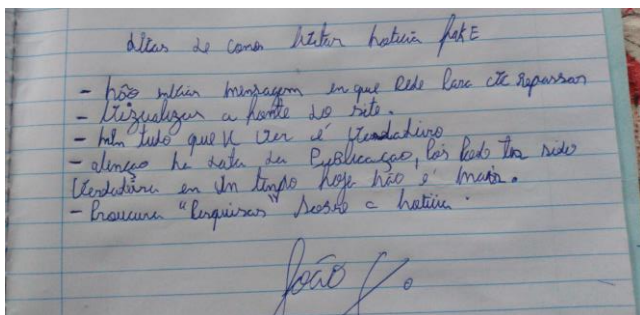 ditas de como Evitar noticia fakE
- não enviar mensagem en que Pede Para cê repassar
- Vizualizar a fonte do site.
- nen tudo que vc ver é Verdadeiro
- atenção na data da Publicação, Pois Pode ter sido
Verdadeira en Un tenpo hoje não é mais.
- Procurar "Pesquisas" Sobre a noticia.
João